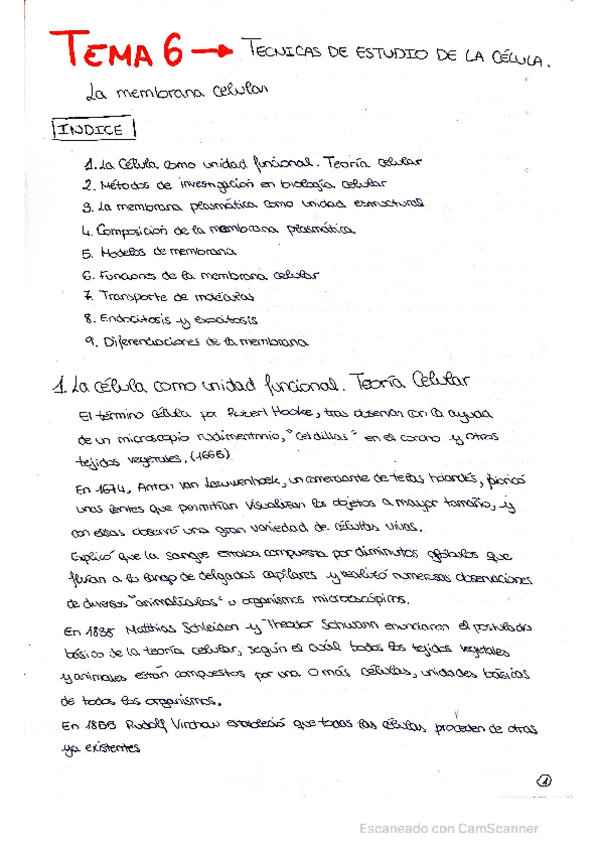 TEMA 6 → TECNICAS DE ESTUDIO DE LA CÉLULA.
La membrana celular
INDICE
1. La Célula como unidad funcional. Teoría celular
2. Métodos de investigación en biología celular
3. La membrana plasmática como unidad estructural
4. Composición de la membrana plasmática
5. Modelos de membrana
6. Funciones de la membrana celular
7. Transporte de moléculas
8. Endocitosis y exocitosis
9. Diferenciaciones de la membrana
1. La célula como unidad funcional. Teoría Celular
El término célula por Robert Hooke, tras observar con la ayuda
de un microscopio rudimentario, "celdillas" en el corcho y otros
tejidos vegetales, (1665)
En 1674, Anton van Leeuwenhoek, un comerciante de telas holandés, fabricó
unas lentes que permitían visualizar los objetos a mayor tamaño, y
con essas observó una gran variedad de células vivas.
Explicó que la sangre estaba compuesta por diminutos glóbulos que
fluían a lo largo de delgados capilares y realizó numerosas observaciones
de diversos "animalículos" u organismos microscópicos.
En 1838 Matthias Schleiden y Theodor Schwann enunciaron el postulado
básico de la teoría celular, según el cuál todos los tejidos vegetales
y animales están compuestos por una o más células, unidades básicas
de todos los organismos.
En 1855 Rudolf Virchow estableció que todas las células proceden de otras
ya existentes
1
Escaneado con CamScanner